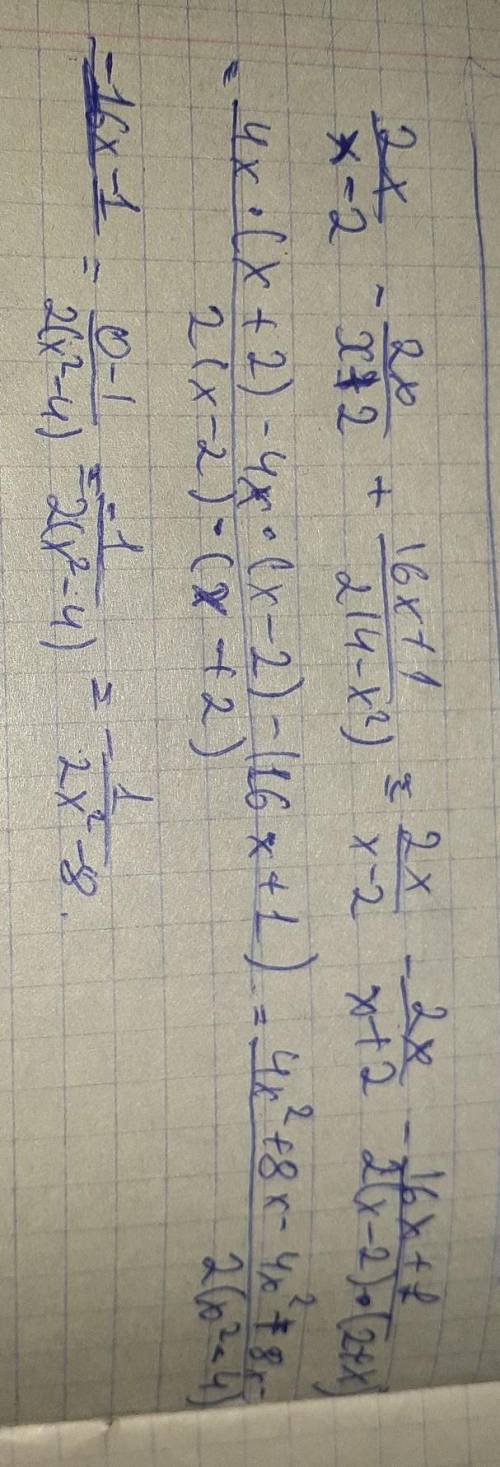 2x/(x-2) - 2x/(x+2) + (16x+1)/(2(4-x²)) = 2x/(x-2) - 2x/(x+2) - (16x+1)/(2(x-2)·(2+x))
= (4x·(x+2)-4x·(x-2)-(16x+1))/(2(x-2)·(x+2)) = (4x²+8x-4x²+8x)/(2(x²-4))
-16x-1 = (0-1)/(2(x²-4)) = -1/(2(x²-4)) = -1/(2x²-8).